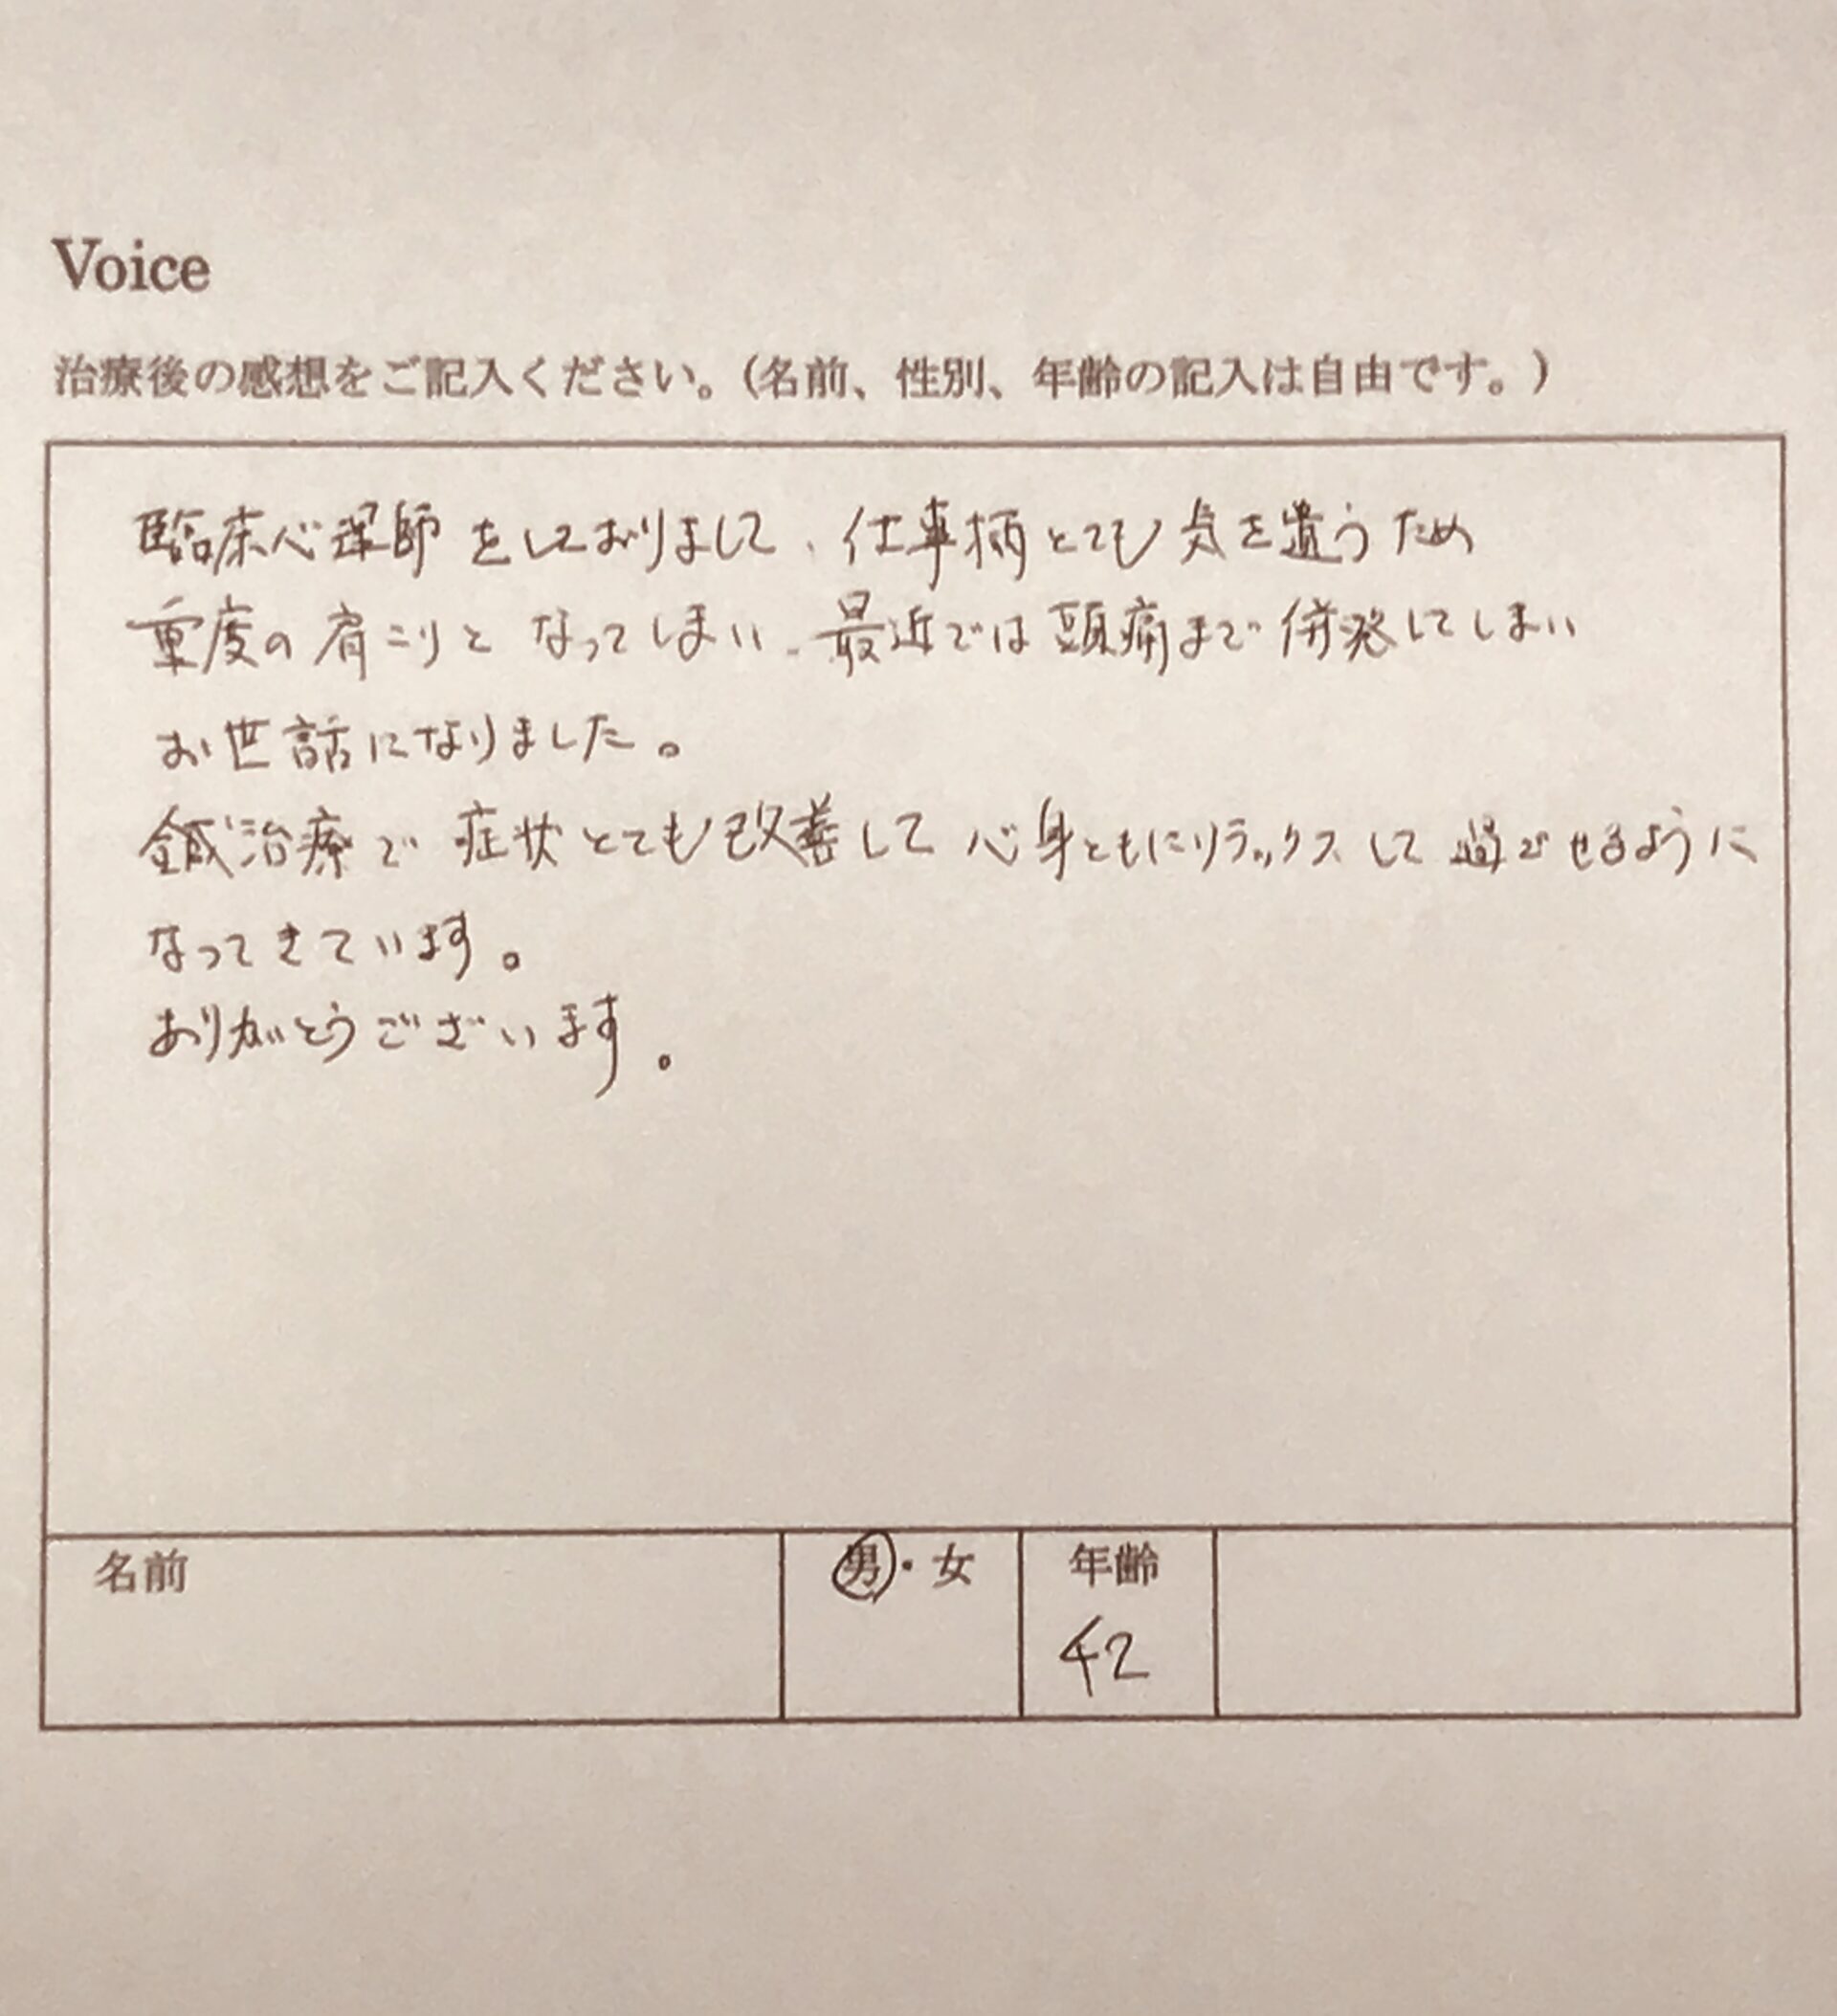 Voice
治療後の感想をご記入ください。(名前、性別、年齢の記入は自由です。)
臨床心理師をしておりまして、仕事柄とても気を遣うため
重度の肩こりとなってしまい、最近では頭痛まで併発してしまい
お世話になりました。
鍼治療で症状とても改善して心身ともにリラックスして過ごせるように
なってきています。
ありがとうございます。
名前 男・女 年齢
42